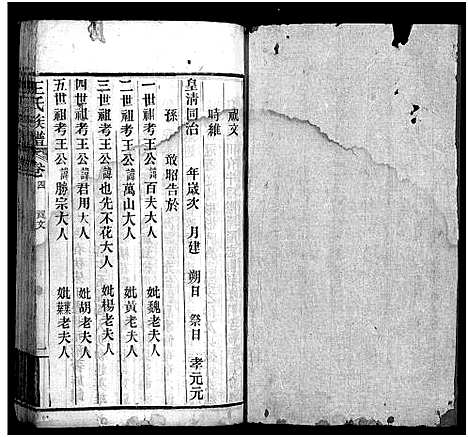 祝文
時維
皇清同治　年歲次　月建　朔日　祭日　孝元元
孫　敢昭告於
一世祖考王公諱百夫大人　妣魏老夫人
二世祖考王公諱萬山大人　妣黃老夫人
三世祖考王公諱也先不花大人　妣楊老夫人
四世祖考王公諱君用大人　妣胡老夫人
五世祖考王公諱勝宗大人　妣葉老夫人
王氏族譜　卷四　祝文　一